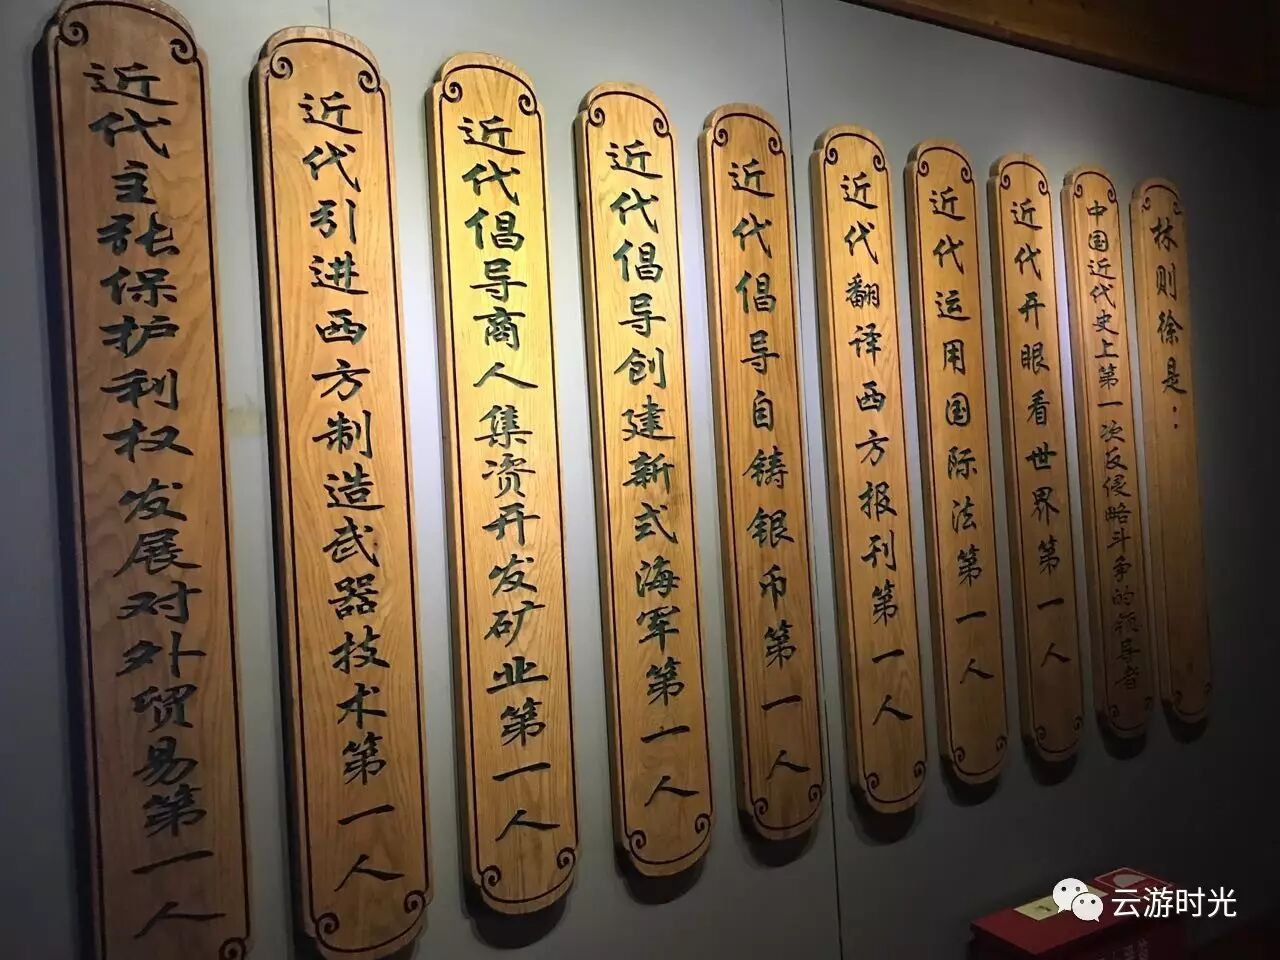 林则徐是：
中国近代史上第一次反侵略斗争的领导者
近代开眼看世界第一人
近代运用国际法第一人
近代翻译西方报刊第一人
近代倡导自铸银币第一人
近代倡导创建新式海军第一人
近代倡导商人集资开发矿业第一人
近代引进西方制造武器技术第一人
近代主张保护利权发展对外贸易第一人
云游时光